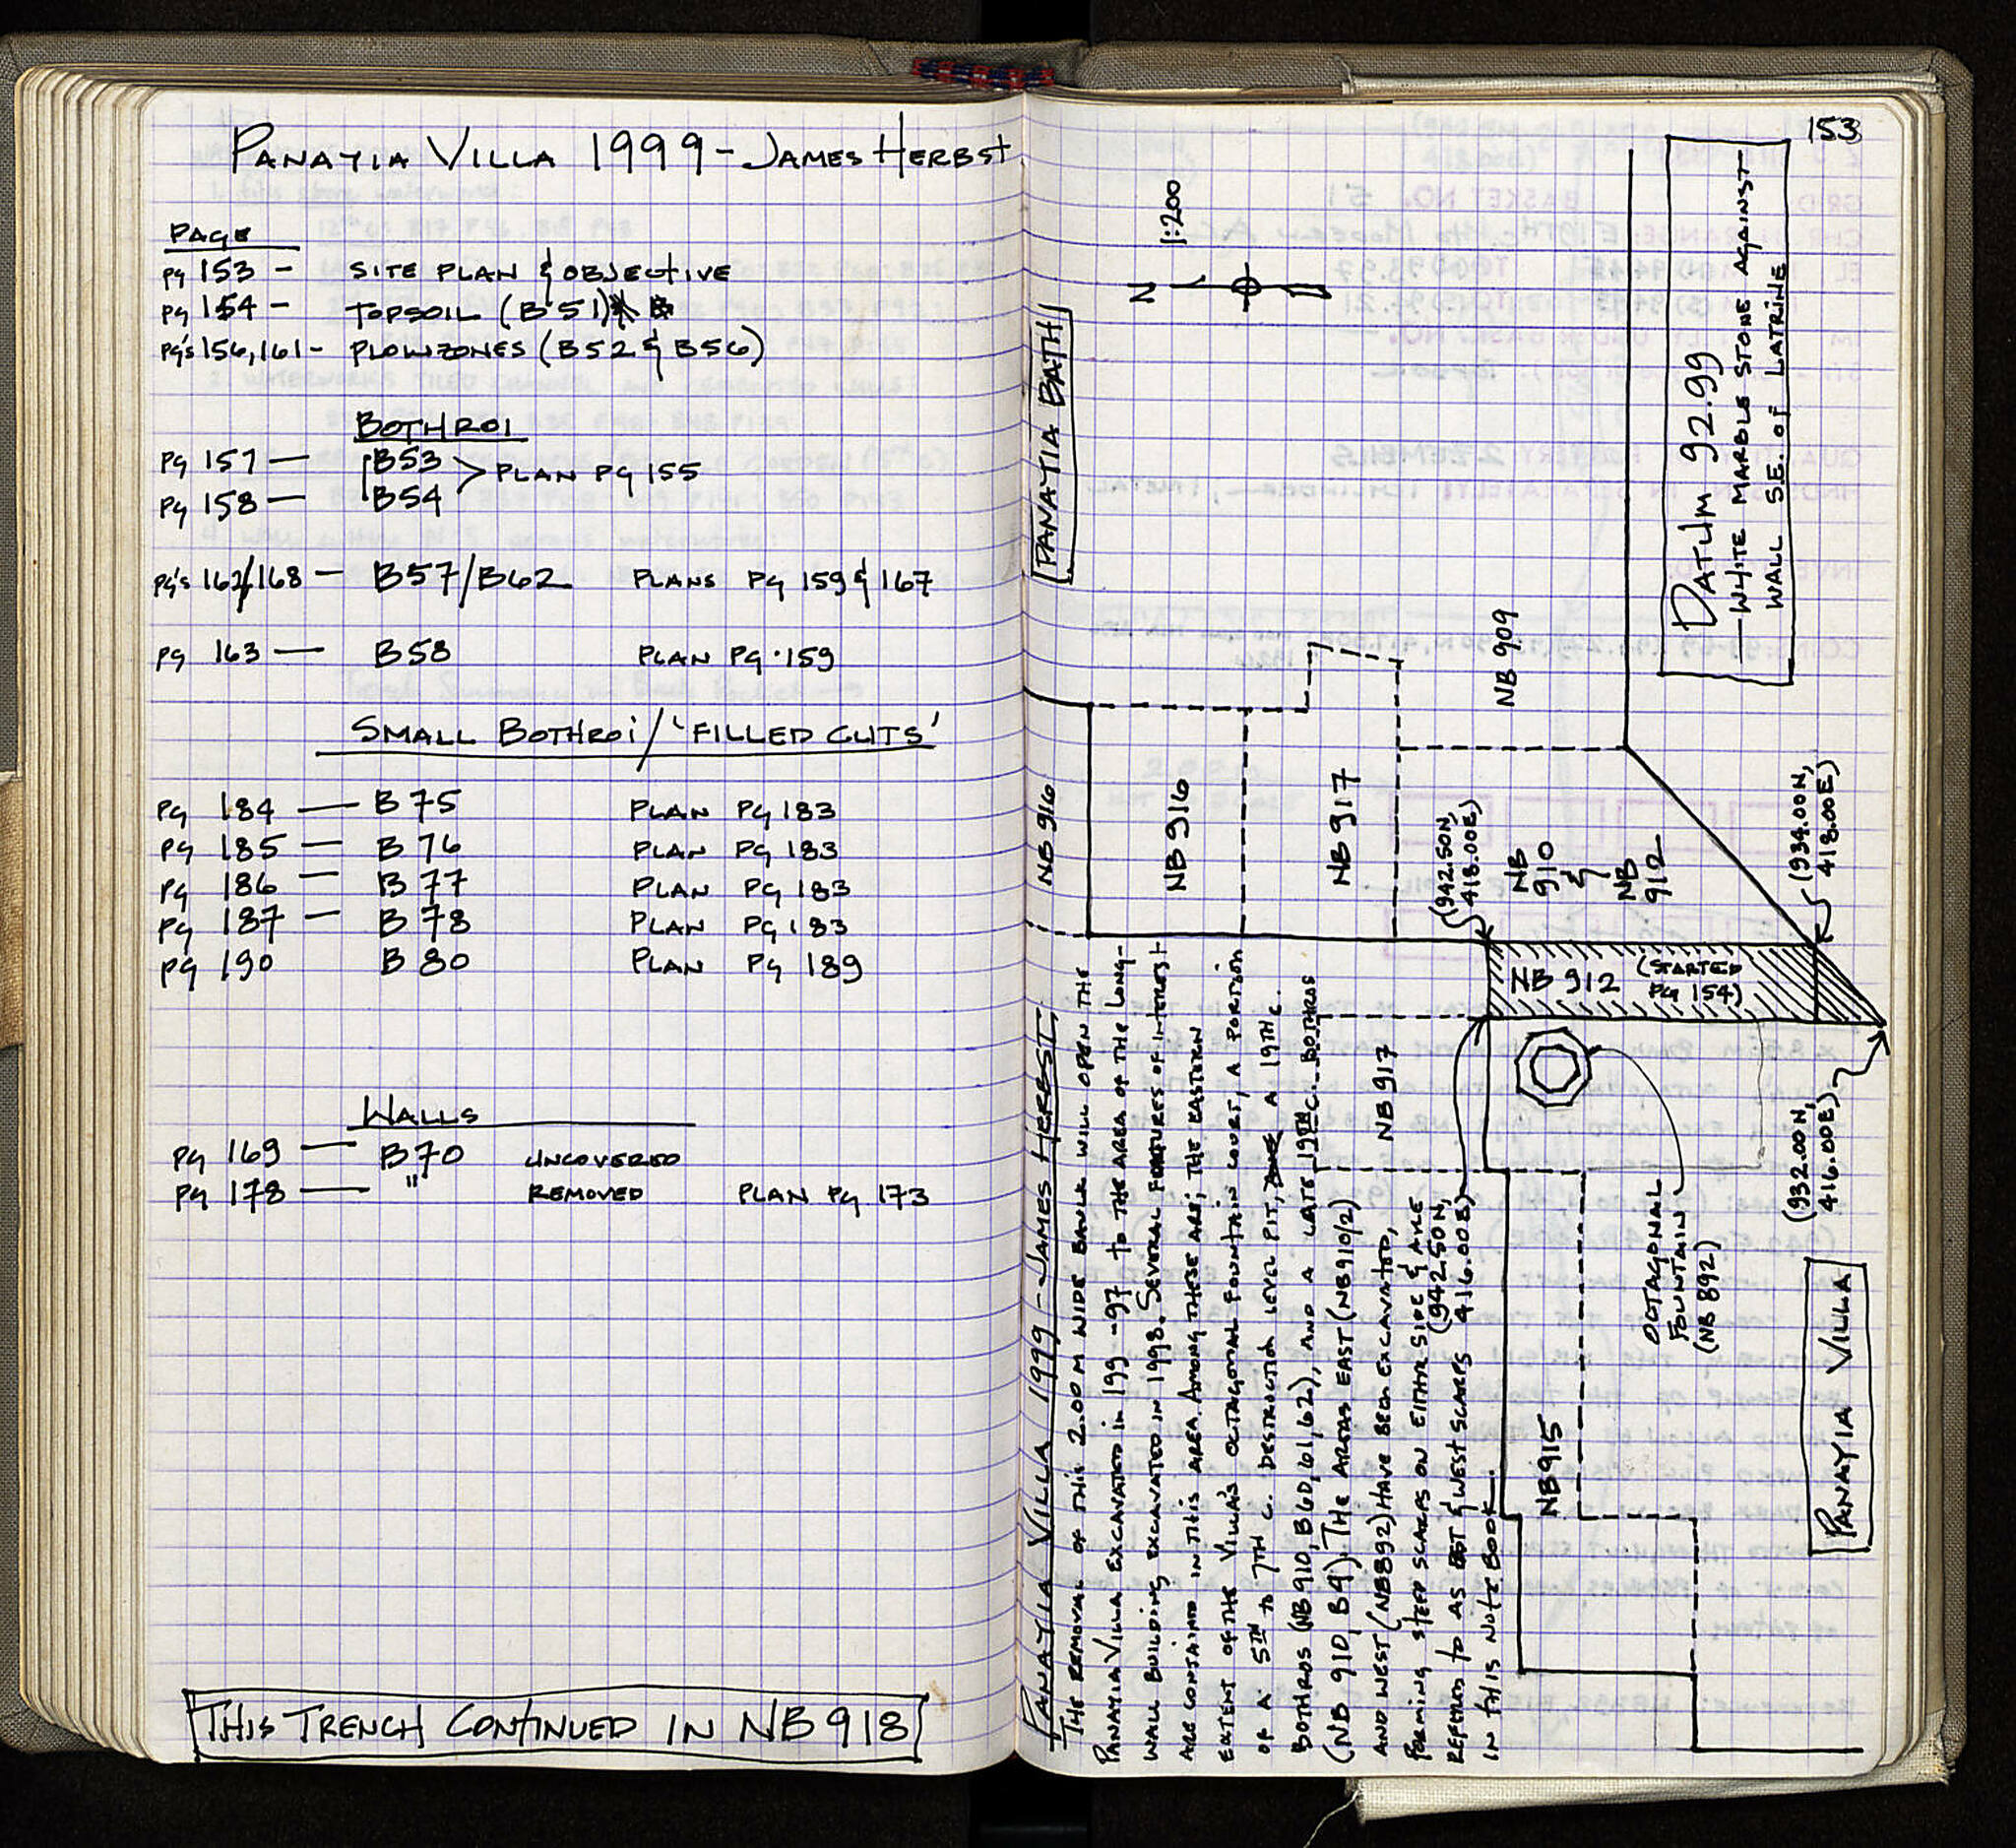 PANAYIA VILLA 1999 - JAMES HERBST
PAGE
PG 153 - SITE PLAN & OBJECTIVE
PG 154 - TOPSOIL (B51)
PG'S 156, 161 - PLOWZONES (B52 & B56)
BOTHROI
PG 157 — B53
> PLAN PG 155
PG 158 — B54
PG'S 162/168 — B57/B62 PLANS PG 159 & 167
PG 163 — B58 PLAN PG. 159
SMALL BOTHROI / 'FILLED CUTS'
PG 184 — B75 PLAN PG 183
PG 185 — B76 PLAN PG 183
PG 186 — B77 PLAN PG 183
PG 187 — B78 PLAN PG 183
PG 190 B80 PLAN PG 189
WALLS
PG 169 — B70 UNCOVERED
PG 178 — " REMOVED PLAN PG 173
THIS TRENCH CONTINUED IN NB 918
153
PANAYIA VILLA 1999 - JAMES HERBST,
THE REMOVAL OF THIS 2.00 M WIDE BAULK WILL OPEN THE
PANAYIA VILLA EXCAVATED IN 199 -97 TO THE AREA OF THE LONG-
WALL BUILDING EXCAVATED IN 1998. SEVERAL FEATURES OF INTEREST
ARE CONTAINED IN THIS AREA. AMONG THESE ARE; THE EASTERN
EXTENT OF THE VILLA'S OCTAGONAL FOUNTAIN COURT, A PORTION
OF A 5TH TO 7TH C. DESTRUCTION LEVEL PIT, A 19TH C.
BOTHROS (NB 910, B60, 61, 62), AND A LATE 19TH C. BOTHROS
(NB 910, B9). THE AREAS EAST (NB 910/2)
AND WEST (NB 892) HAVE BEEN EXCAVATED,
FORMING STEEP SCARPS ON EITHER SIDE & ARE
REFERRED TO AS EAST & WEST SCARPS
IN THIS NOTEBOOK.
PANAYIA BATH
N
1:200
DATUM 92.99
— WHITE MARBLE STONE AGAINST
WALL S.E. OF LATRINE
NB 916
NB 916
NB 917
NB 909
(942.50N,
418.00E)
NB
910
&
NB
912
(934.00N,
418.00E)
NB 912 (STARTED
PG 154)
NB 917
(942.50N,
416.00E)
OCTAGONAL
FOUNTAIN
(NB 892)
(932.00N,
416.00E)
NB 915
PANAYIA VILLA